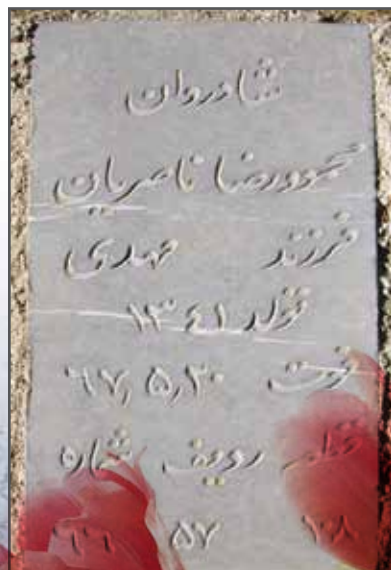 شادروان
محمودرضا ناصریان
فرزند مهدی
تولد ۱۳۴۱
فوت ۶۷٫۵٫۳۰
قطعه ردیف شماره
۵۷